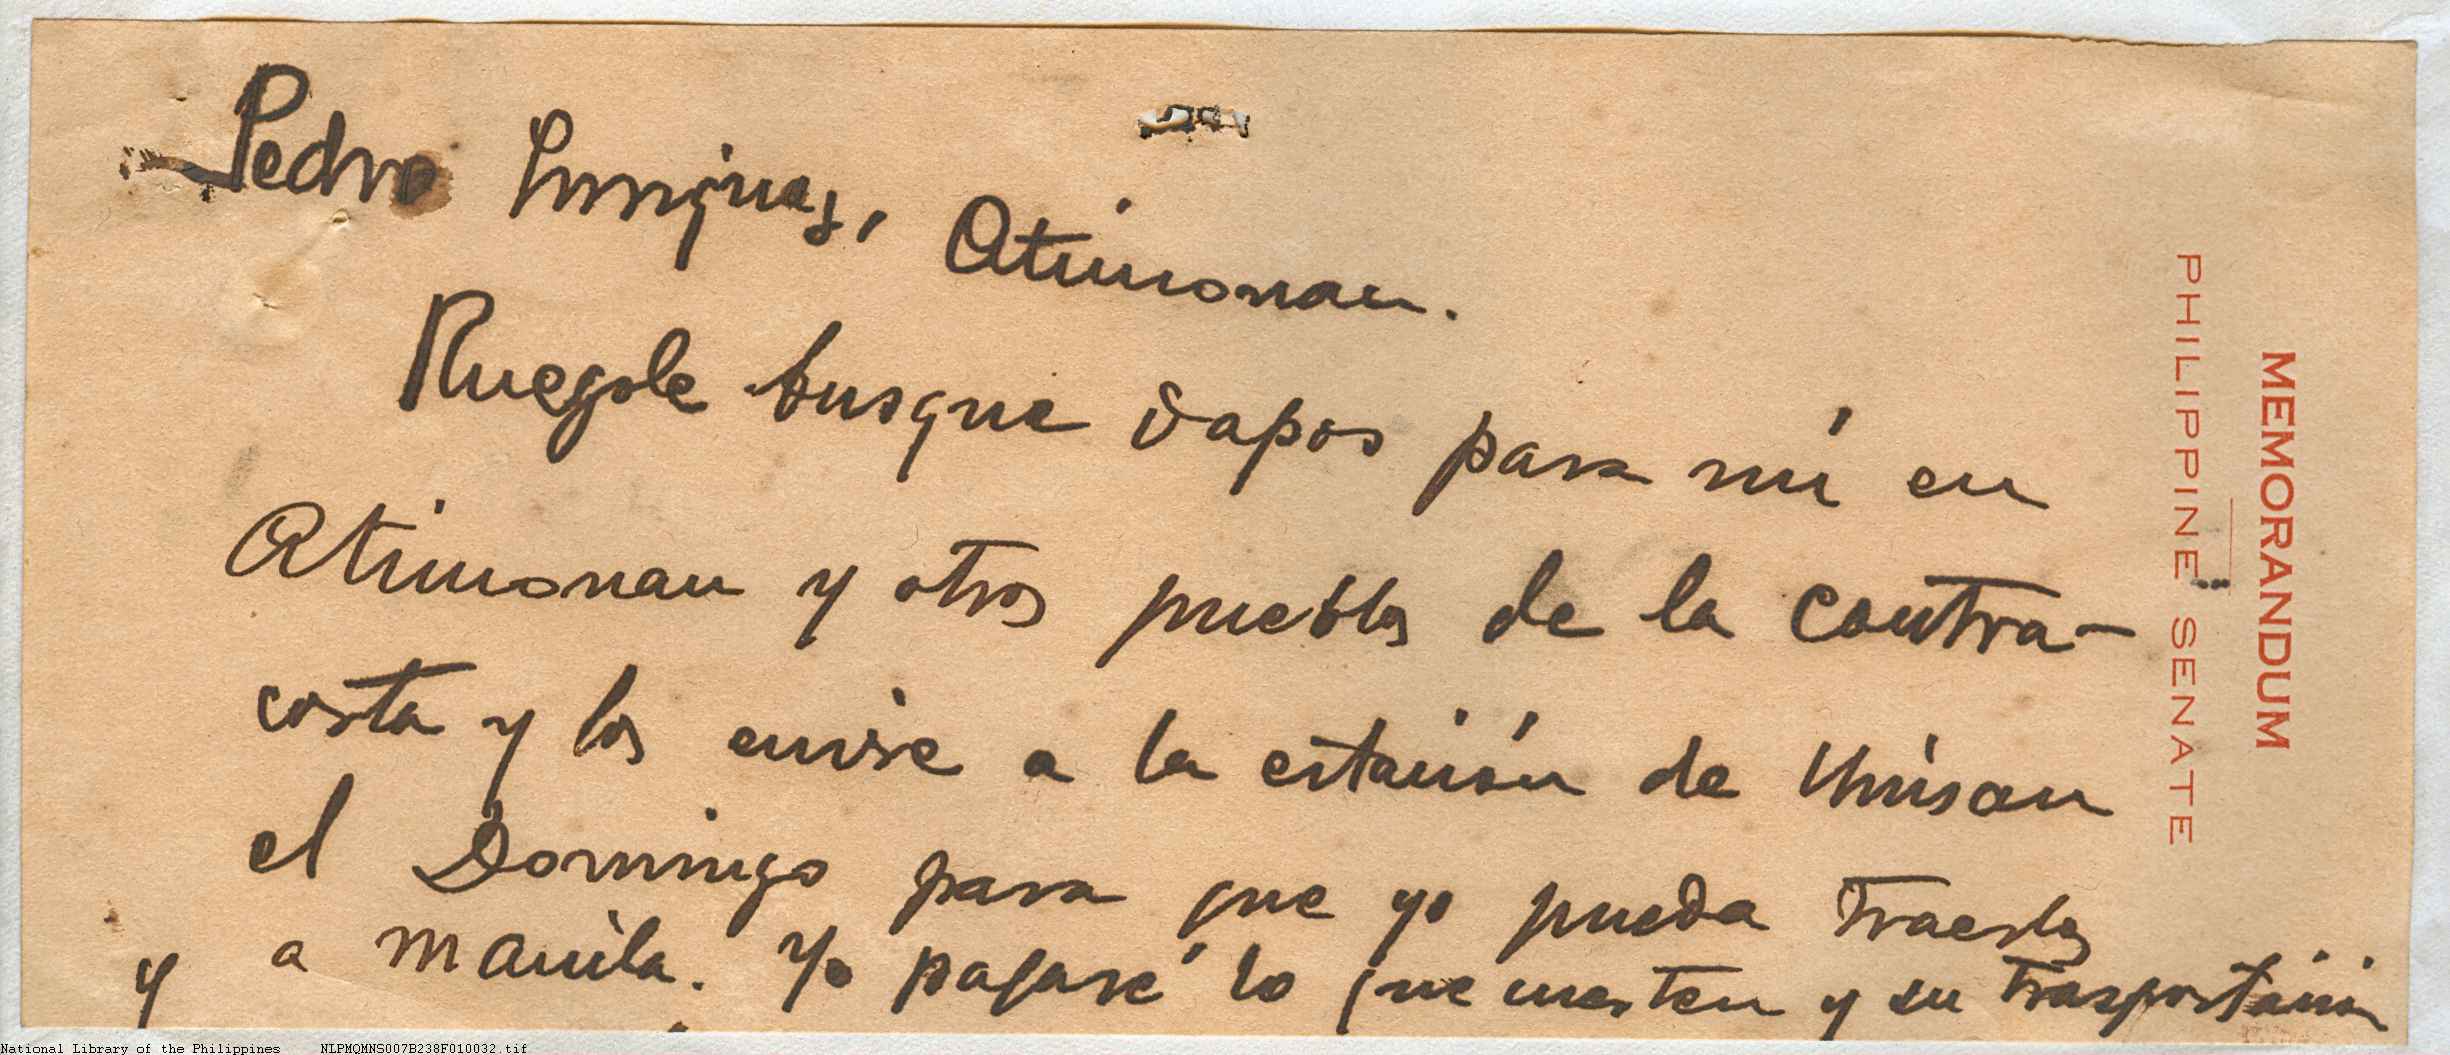 Pedro Insiguas, Atimonan.
Ruegole busque dapos para mí en
Atimonan y otros pueblos de la contra-
costa y los envie a la estación de Unisan
el Domingo para que yo pueda traerlos
y a Manila. Yo pagaré lo que cuesten y su trasportación
MEMORANDUM
PHILIPPINE SENATE
National Library of the Philippines NLPMQMNS007B238F010032.tif